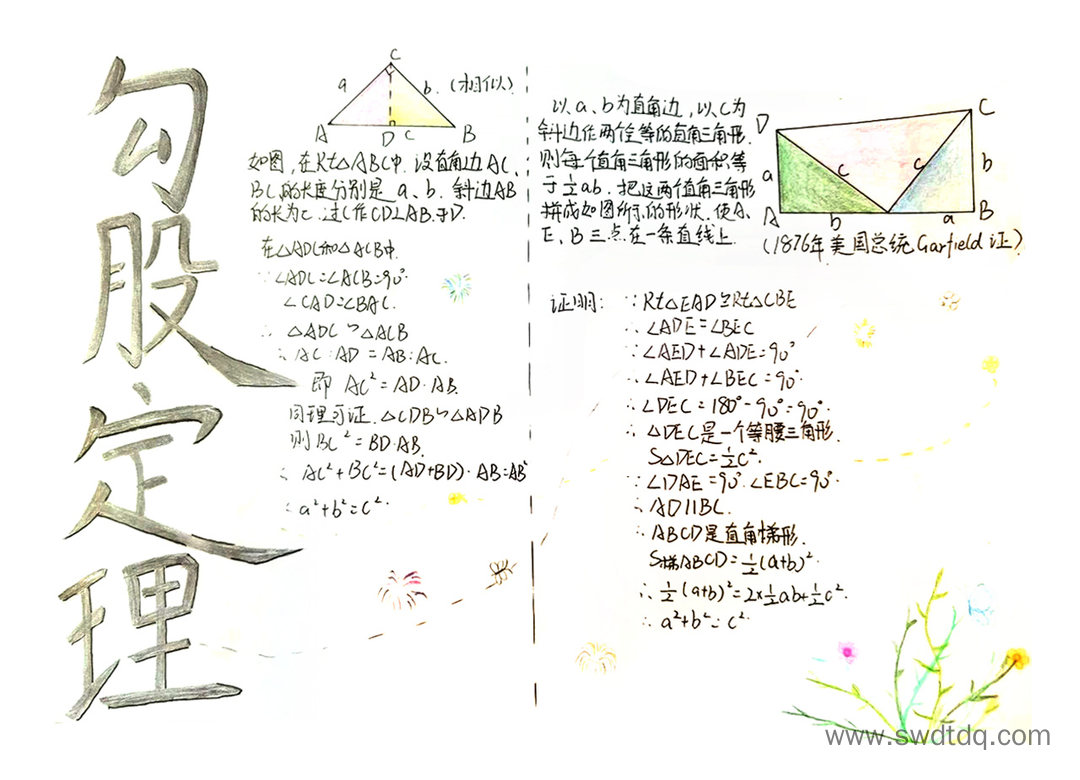 勾股定理
C
a
b.
(相似)
A
D
C
B
如图,在Rt△ABC中.设直角边AC、
BC,的长度分别是 a、b.斜边AB
的长为c.过C作CD⊥AB于D.
在△ADC和△ACB中.
∵∠ADC=∠ACB=90°
∠CAD=∠BAC.
∴ △ADC∽△ACB
∴ AC:AD = AB:AC.
即 AC²=AD·AB.
同理可证.△CDB∽△ADB
则BC²=BD·AB.
∴ AC²+BC²=(AD+BD)·AB=AB²
∴a²+b²=c².
以a、b为直角边,以C为
斜边作两个全等的直角三角形.
则每个直角三角形的面积等
于½ab.把这两个直角三角形
拼成如图所示的形状.使A、
E、B三点在一条直线上.
D
C
a
c
c
b
A
b
a
B
(1876年美国总统Garfield证)
证明: ∵Rt△EAD≌Rt△CBE
∴∠ADE=∠BEC
∵∠AED+∠ADE=90°
∴∠AED+∠BEC=90°
∴∠DEC=180°-90°=90°.
∴ △DEC是一个等腰三角形.
S△DEC=½c².
∵∠DAE=90°.∠EBC=90°.
∴AD∥BC.
∴ABCD是直角梯形.
S梯ABCD=½(a+b)².
∴½(a+b)²=2×½ab+½c².
∴a²+b²=c².
www.swdtdq.com